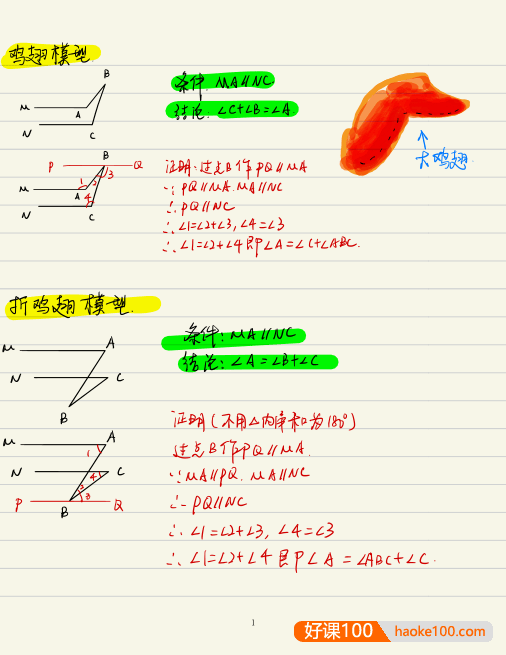 鸡翅模型
B
M
A
N
C
条件 MA∥NC
结论: ∠C+∠B=∠A
大鸡翅
P
B
Q
M
1
2
3
A
4
N
C
证明:过点B作PQ∥MA
∵PQ∥MA.MA∥NC
∴PQ∥NC
∴∠1=∠2+∠3,∠4=∠3
∴∠1=∠2+∠4即∠A=∠C+∠ABC.
折鸡翅模型.
M
A
N
C
B
条件:MA∥NC
结论:∠A=∠B+∠C
M
A
1
N
4
C
2
3
P
B
Q
证明(不用△内角和为180°)
过点B作PQ∥MA.
∵MA∥PQ.MA∥NC
∴PQ∥NC
∴∠1=∠2+∠3,∠4=∠3
∴∠1=∠2+∠4即∠A=∠ABC+∠C.
1
好课100 haoke100.com